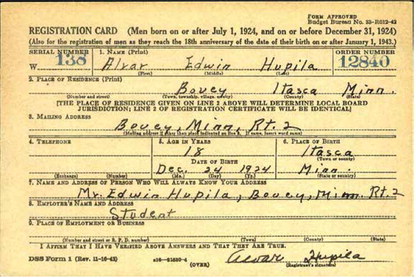 FORM APPROVED
Budget Bureau No.
REGISTRATION CARD (Men born on or after July 1, 1924, and on or before December 31, 1924)
(Also for the registration of men as they reach the 18th anniversary of the date of their birth on or after January 1, 1943.)
SERIAL NUMBER 1. NAME (Print) ORDER NUMBER
W 138 Alvar Edwin Hupila 12840
(First) (Middle) (Last)
2. PLACE OF RESIDENCE (Print)
Bovey Itasca Minn.
(Number and street) (Town, township, village, or city) (County) (State)
[THE PLACE OF RESIDENCE GIVEN ON LINE 2 ABOVE WILL DETERMINE LOCAL BOARD
JURISDICTION; LINE 2 OF REGISTRATION CERTIFICATE WILL BE IDENTICAL]
3. MAILING ADDRESS
Bovey, Minn. Rt. 2
[Mailing address if other than place indicated on line 2. If same, insert word same]
4. TELEPHONE 5. AGE IN YEARS 6. PLACE OF BIRTH
18 Itasca
DATE OF BIRTH (Town or county)
Dec. 24 1924 Minn
(Exchange) (Number) (Mo.) (Day) (Yr.) (State or country)
7. NAME AND ADDRESS OF PERSON WHO WILL ALWAYS KNOW YOUR ADDRESS
Mr. Edwin Hupila, Bovey, Minn. Rt. 2
8. EMPLOYER'S NAME AND ADDRESS
Student
9. PLACE OF EMPLOYMENT OR BUSINESS
(Number and street or R. F. D. number) (Town) (County) (State)
I AFFIRM THAT I HAVE VERIFIED ABOVE ANSWERS AND THAT THEY ARE TRUE.
DSS Form 1 (Rev. 11-16-42) (OVER) Alvar Hupila